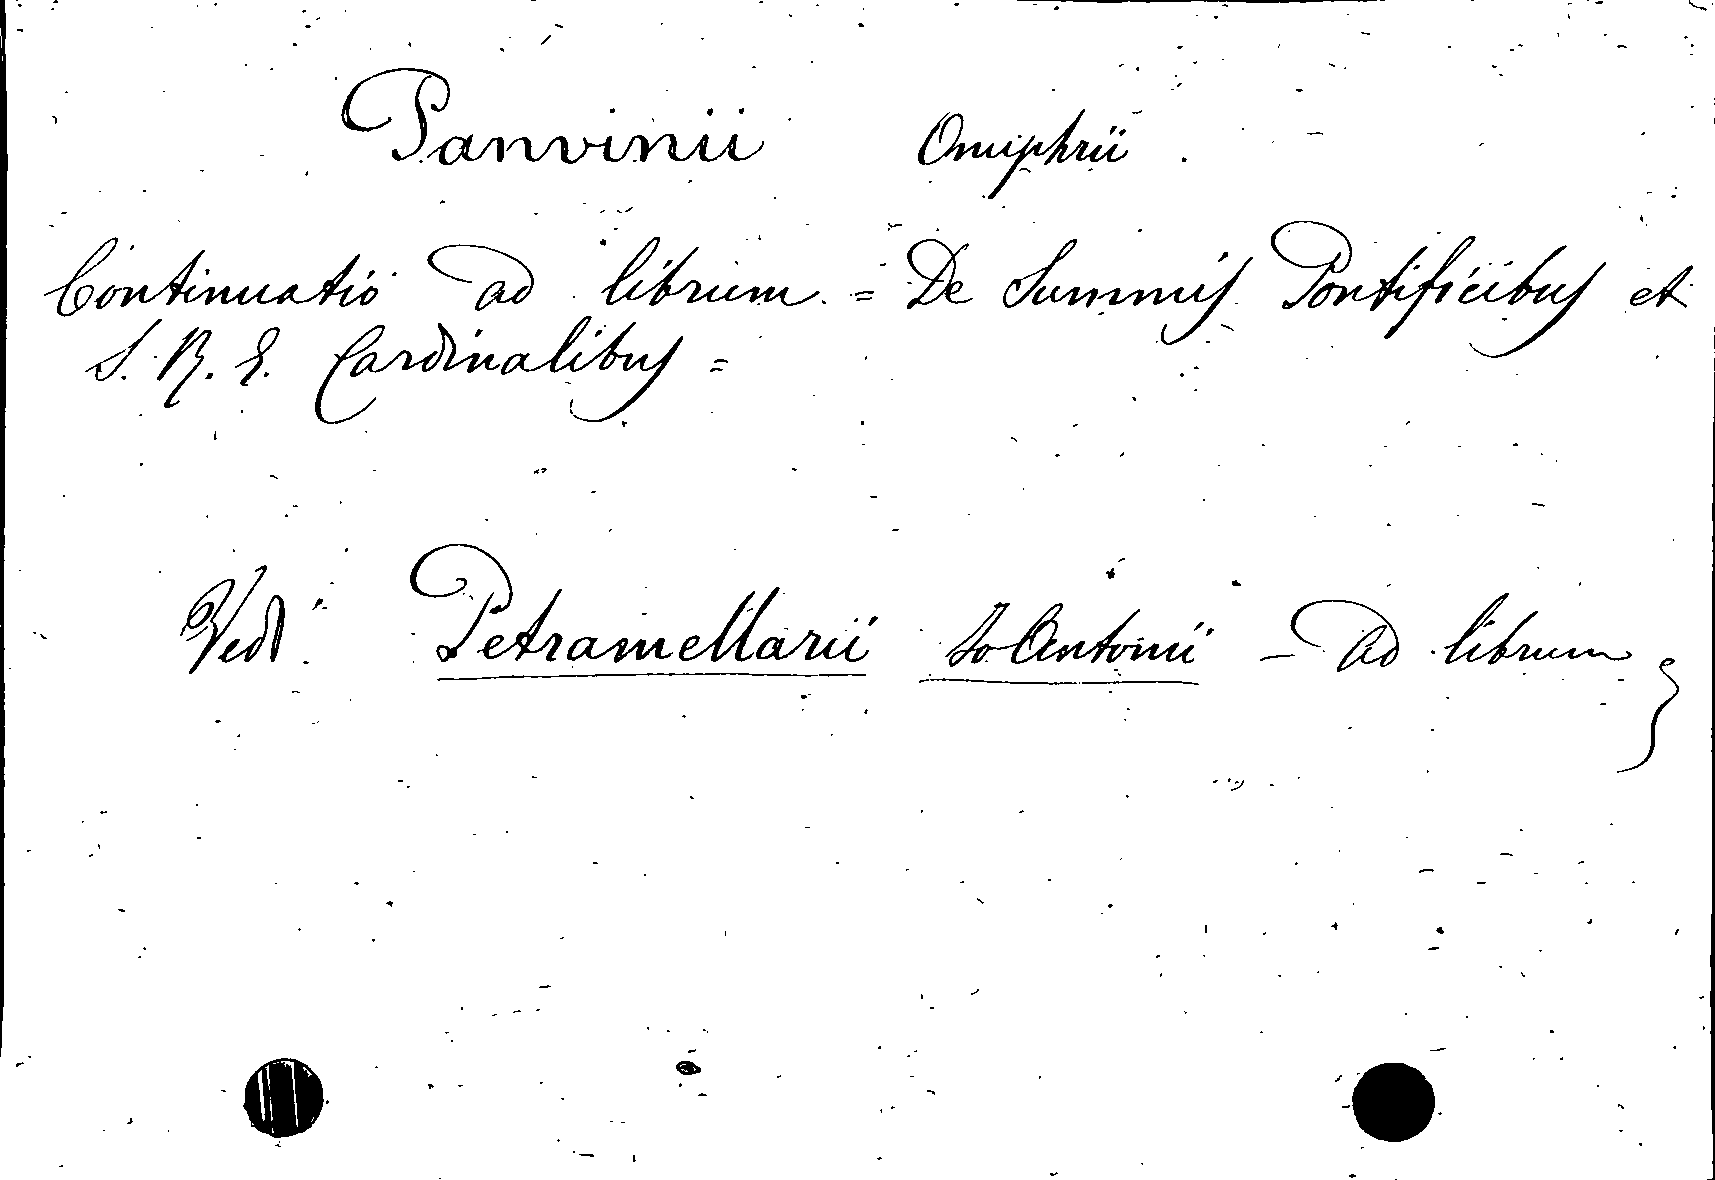 Panvinii Onuphrii.
Continuatio ad librum = De Summis Pontificibus et
S. R. E. Cardinalibus =
Vedi Petramellarii Jo Antonii - Ad librum